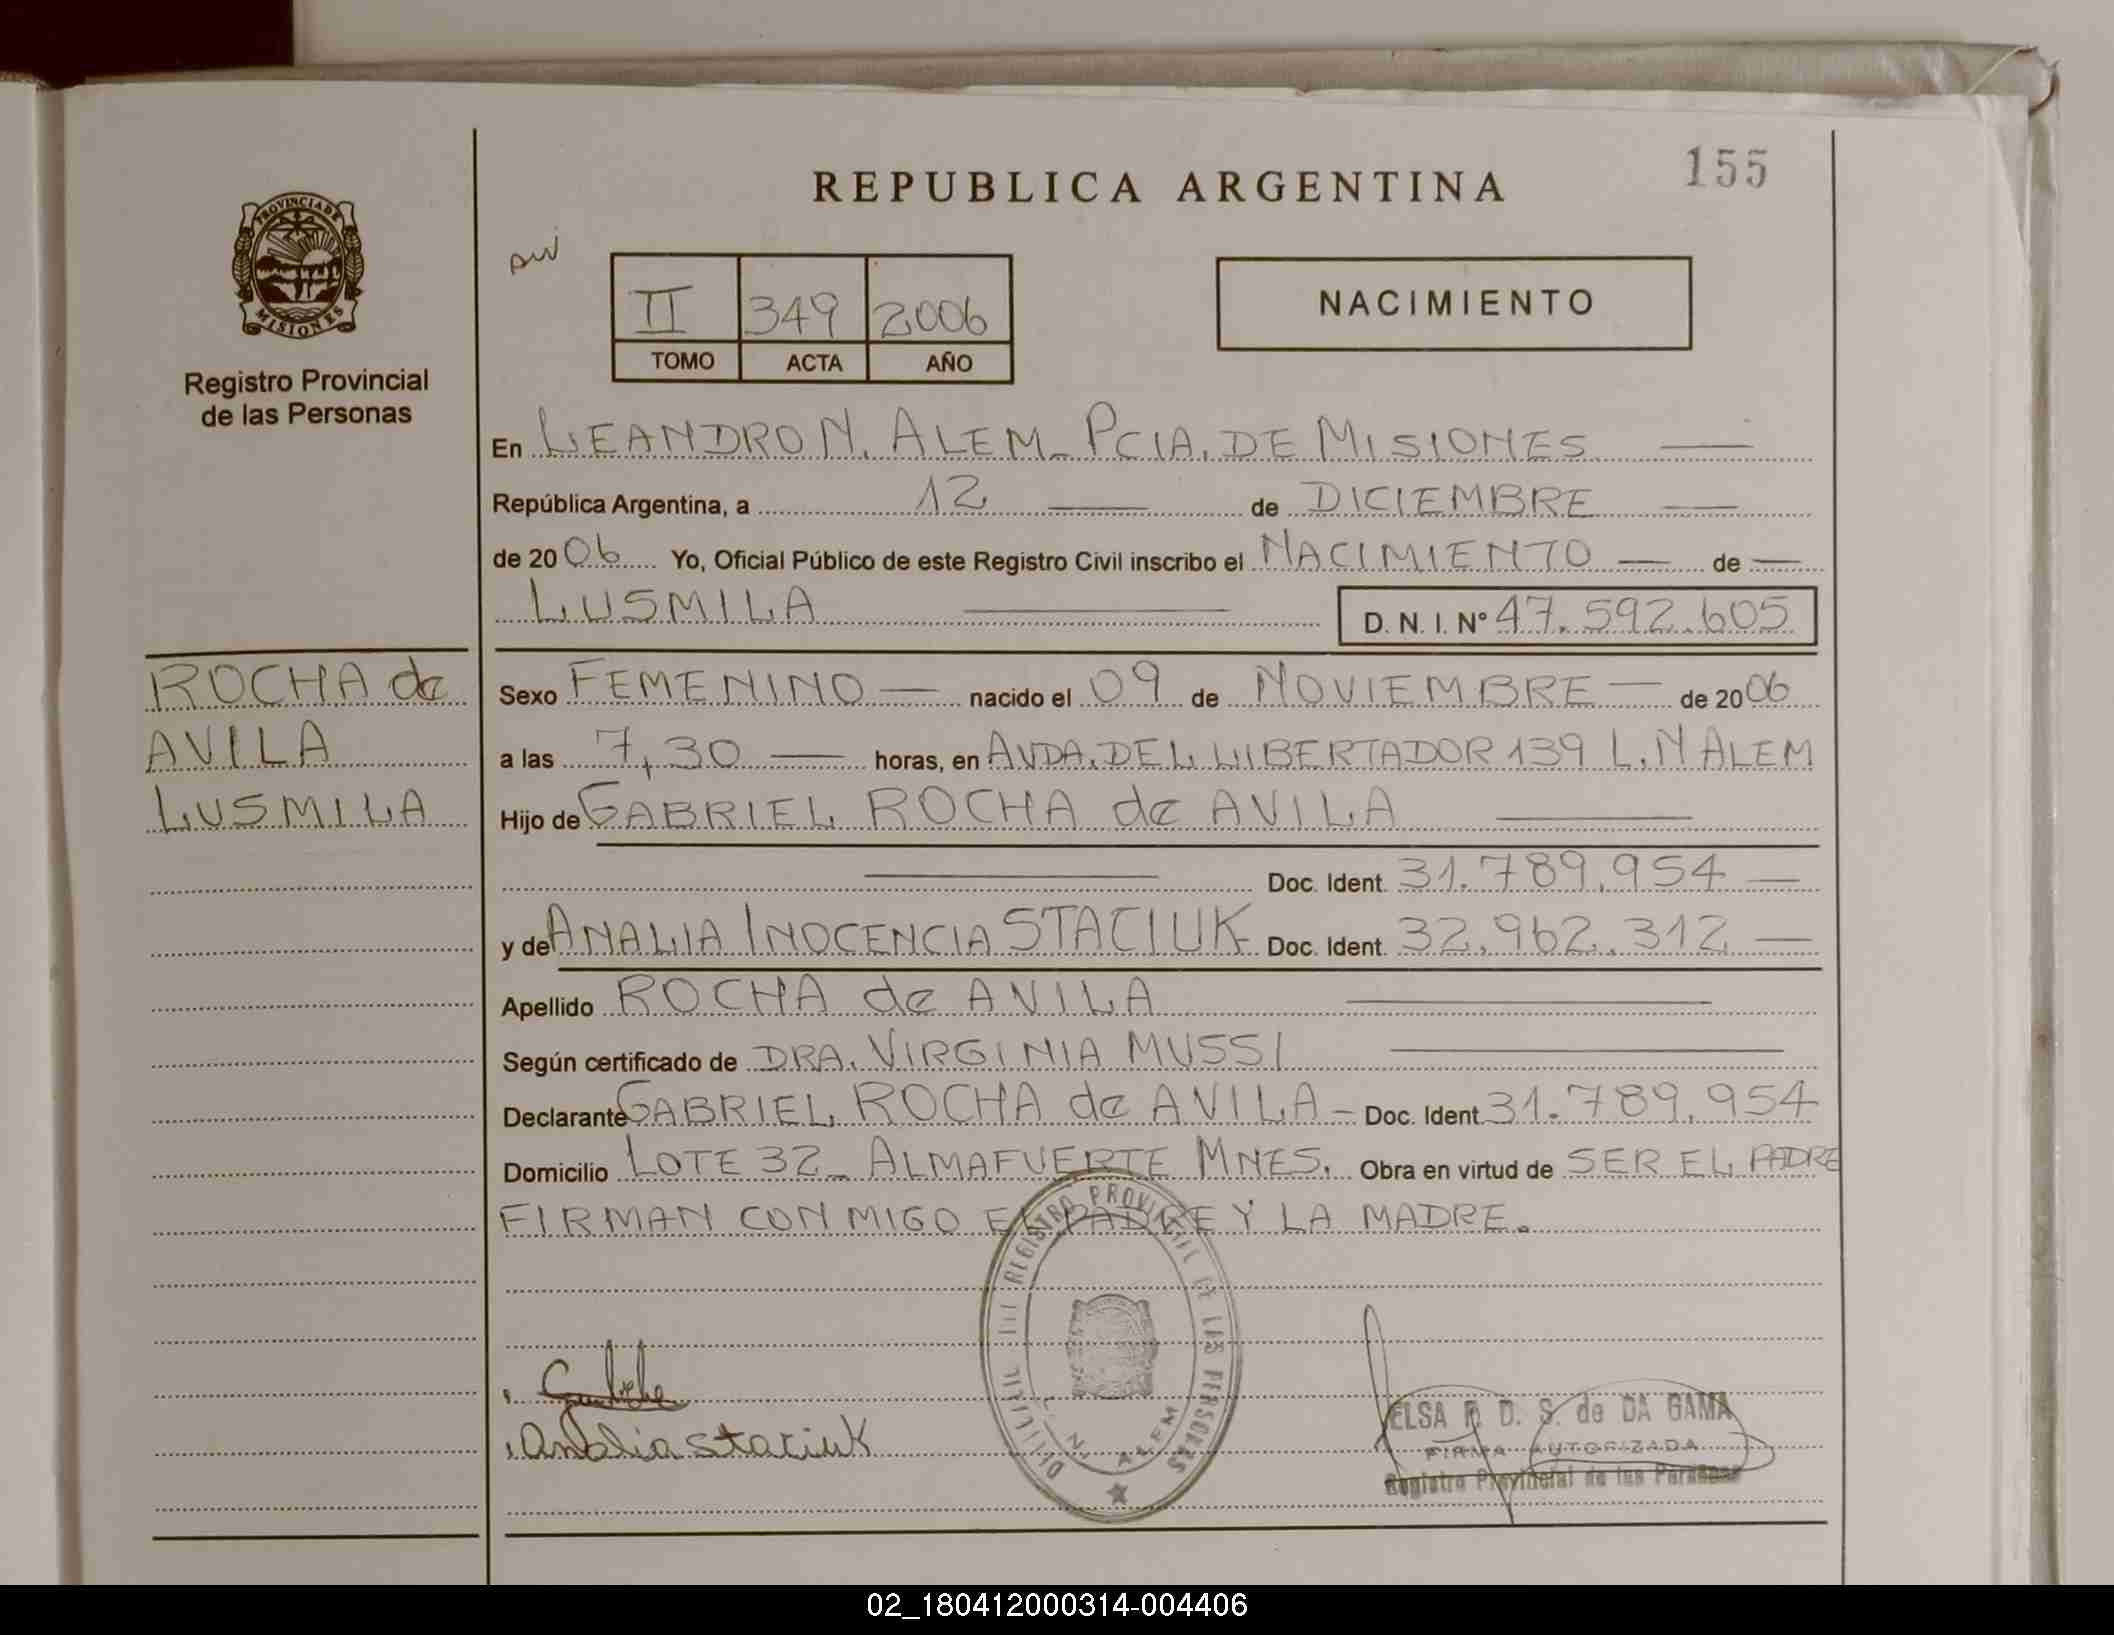 REPUBLICA ARGENTINA
155
PROVINCIA DE
MISIONES
Registro Provincial
de las Personas
II 349 2006
TOMO ACTA AÑO
NACIMIENTO
En LEANDRO N. ALEM - PCIA. DE MISIONES
República Argentina, a 12 de DICIEMBRE
de 2006 Yo, Oficial Público de este Registro Civil inscribo el NACIMIENTO de
LUSMILA D. N. I. Nº 47.592.605
ROCHA de
AVILA
LUSMILA
Sexo FEMENINO nacido el 09 de NOVIEMBRE de 2006
a las 7,30 horas, en AVDA. DEL LIBERTADOR 139 L. N ALEM
Hijo de GABRIEL ROCHA de AVILA
Doc. Ident. 31.789.954
y de ANALIA INOCENCIA STACIUK Doc. Ident. 32.962.312
Apellido ROCHA de AVILA
Según certificado de DRA. VIRGINIA MUSSI
Declarante GABRIEL ROCHA de AVILA - Doc. Ident. 31.789.954
Domicilio LOTE 32 - ALMAFUERTE MNES. Obra en virtud de SER EL PADRE
FIRMAN CON MIGO EL PADRE Y LA MADRE.
REGISTRO PROVINCIAL DE LAS PERSONAS
L. N. ALEM
Analia staciuk
ELSA R. D. S. de DA GAMA
FIRMA AUTORIZADA
Registro Provincial de las Personas
02_180412000314-004406